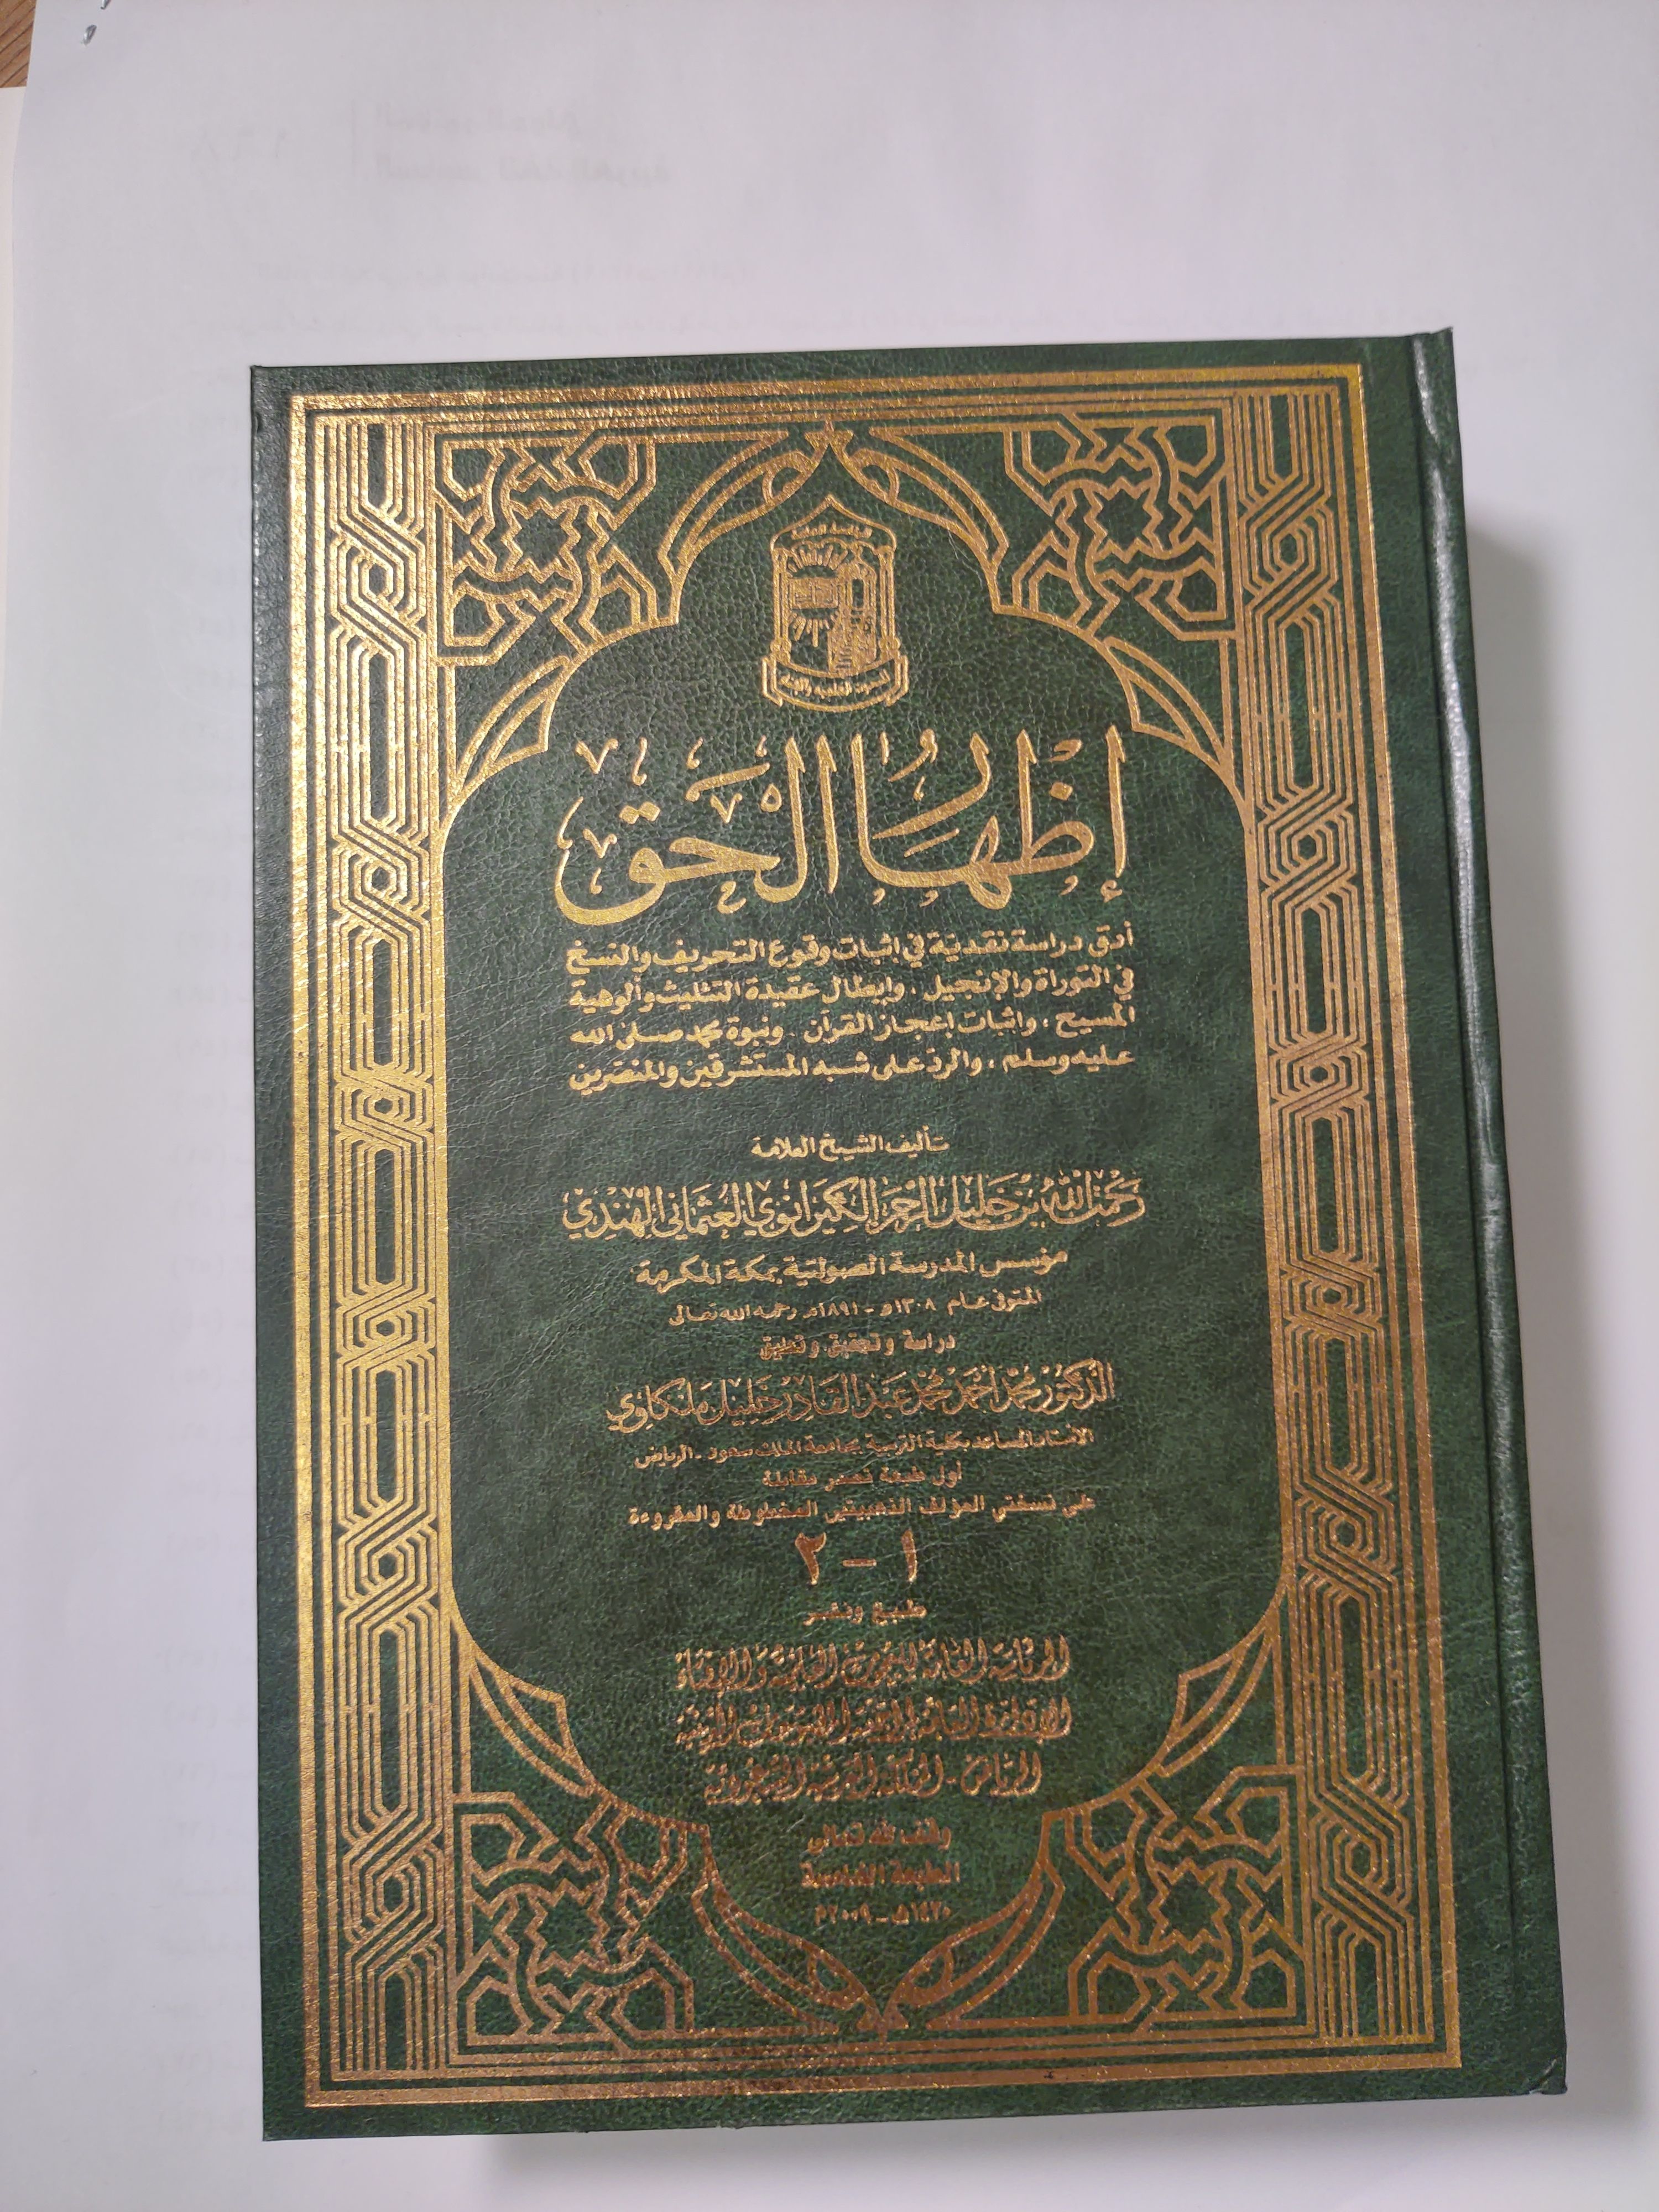 إظهار الحق
أدق دراسة نقدية في إثبات وقوع التحريف والنسخ
في التوراة والإنجيل ، وإبطال عقيدة التثليث وألوهية
المسيح ، وإثبات إعجاز القرآن . ونبوة محمد صلى الله
عليه وسلم ، والرد على شبه المستشرقين والمنصرين
تأليف الشيخ العلامة
رحمت الله بن خليل الرحمن الكيرانوي العثماني الهندي
مؤسس المدرسة الصولتية بمكة المكرمة
المتوفى عام ١٣٠٨هـ - ١٨٩١م رحمه الله تعالى
دراسة وتحقيق وتعليق
الدكتور محمد أحمد محمد عبد القادر خليل ملكاوي
الأستاذ المساعد بكلية التربية بجامعة الملك سعود - الرياض
أول طبعة تصدر مقابلة
على نسختي المؤلف الذهبيتين المخطوطة والمقروءة
١ - ٢
طبع ونشر
الرئاسة العامة للبحوث العلمية والإفتاء
الرياض - المملكة العربية السعودية
وقف لله تعالى
الطبعة الخامسة
١٤٣٠هـ - ٢٠٠٩م